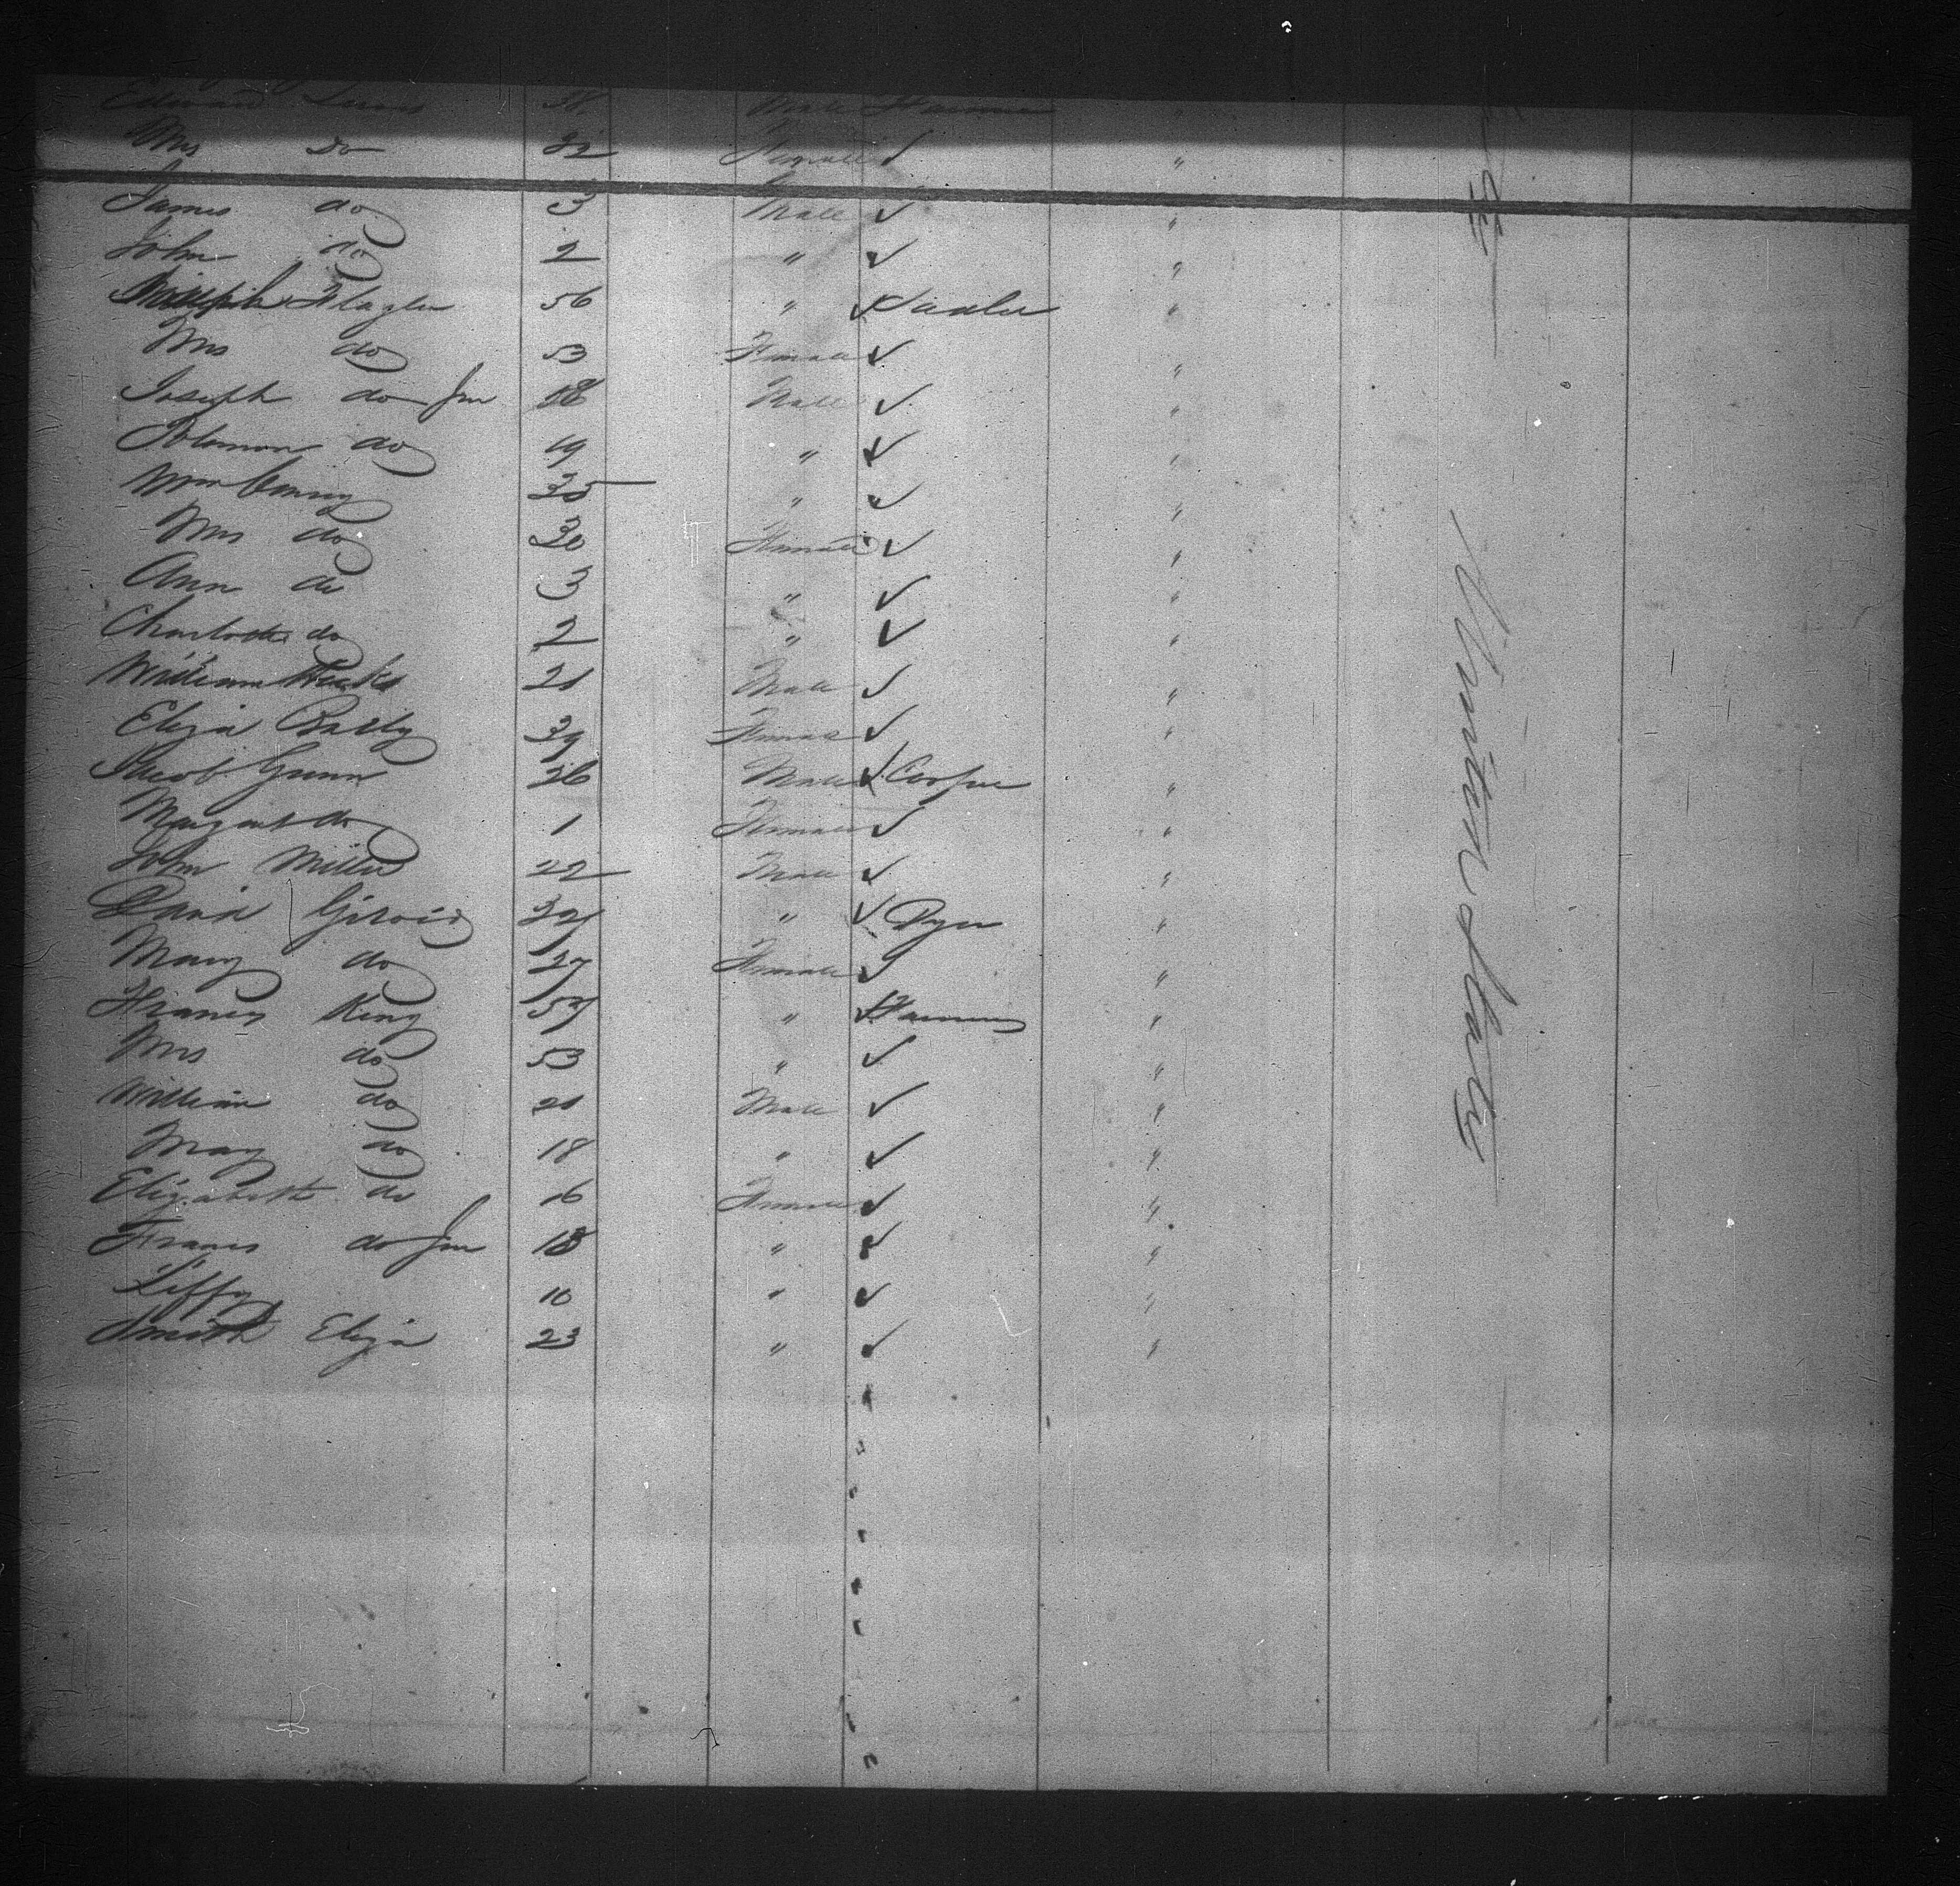 Edward Lewis 38 Male Farmer "
Mrs Do 32 Female ✓ "
James do 3 Male ✓ "
John do 2 " ✓ "
Joseph Flagler 56 " ✓ Sadler "
Mrs do 53 Female ✓ "
Joseph do Jnr 18 Male ✓ "
Solomon do 19 " ✓ "
Wm 35 " ✓ "
Mrs do 30 Female ✓ "
Ann do 3 " ✓ "
Charlotte do 2 " ✓ "
William 21 Male ✓ "
Eliza 39 Female ✓ "
Jacob Gunn 26 Male ✓ Cooper "
Margaret do 1 Female ✓ "
John Miller 22 Male ✓ "
David " ✓ Dyer "
Mary do 27 Female ✓ "
Francis King " ✓ Farmer "
Mrs do 53 " ✓ "
William do 21 Male ✓ "
May do 18 " ✓ "
Elizabeth do 16 Female ✓ "
Frances do Jnr " ✓ "
10 " ✓ "
Smith Eliza 23 " ✓ "
United States